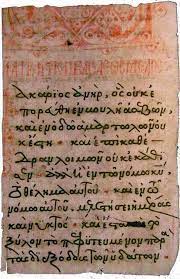 ακάριος ἀνὴρ, ὃς οὐκ ἐ
πορεύθη ἐν βουλῇ ἀσεβῶν,
καὶ ἐν ὁδῷ ἁμαρτωλῶν οὐ
κ ἔστη· καὶ ἐπὶ καθέ
δραν λοιμῶν οὐκ ἐκάθι
σεν· ἀλλ' ἢ ἐν τῷ νόμῳ
τὸ θέλημα αὐτοῦ· καὶ ἐν τῷ
νόμῳ αὐτοῦ μελετήσει ἡμέρας
καὶ νυκτός· καὶ ἔσται ὡς τὸ
ξύλον τὸ πεφυτευμένον παρὰ
τὰς διεξόδους τῶν ὑδάτων